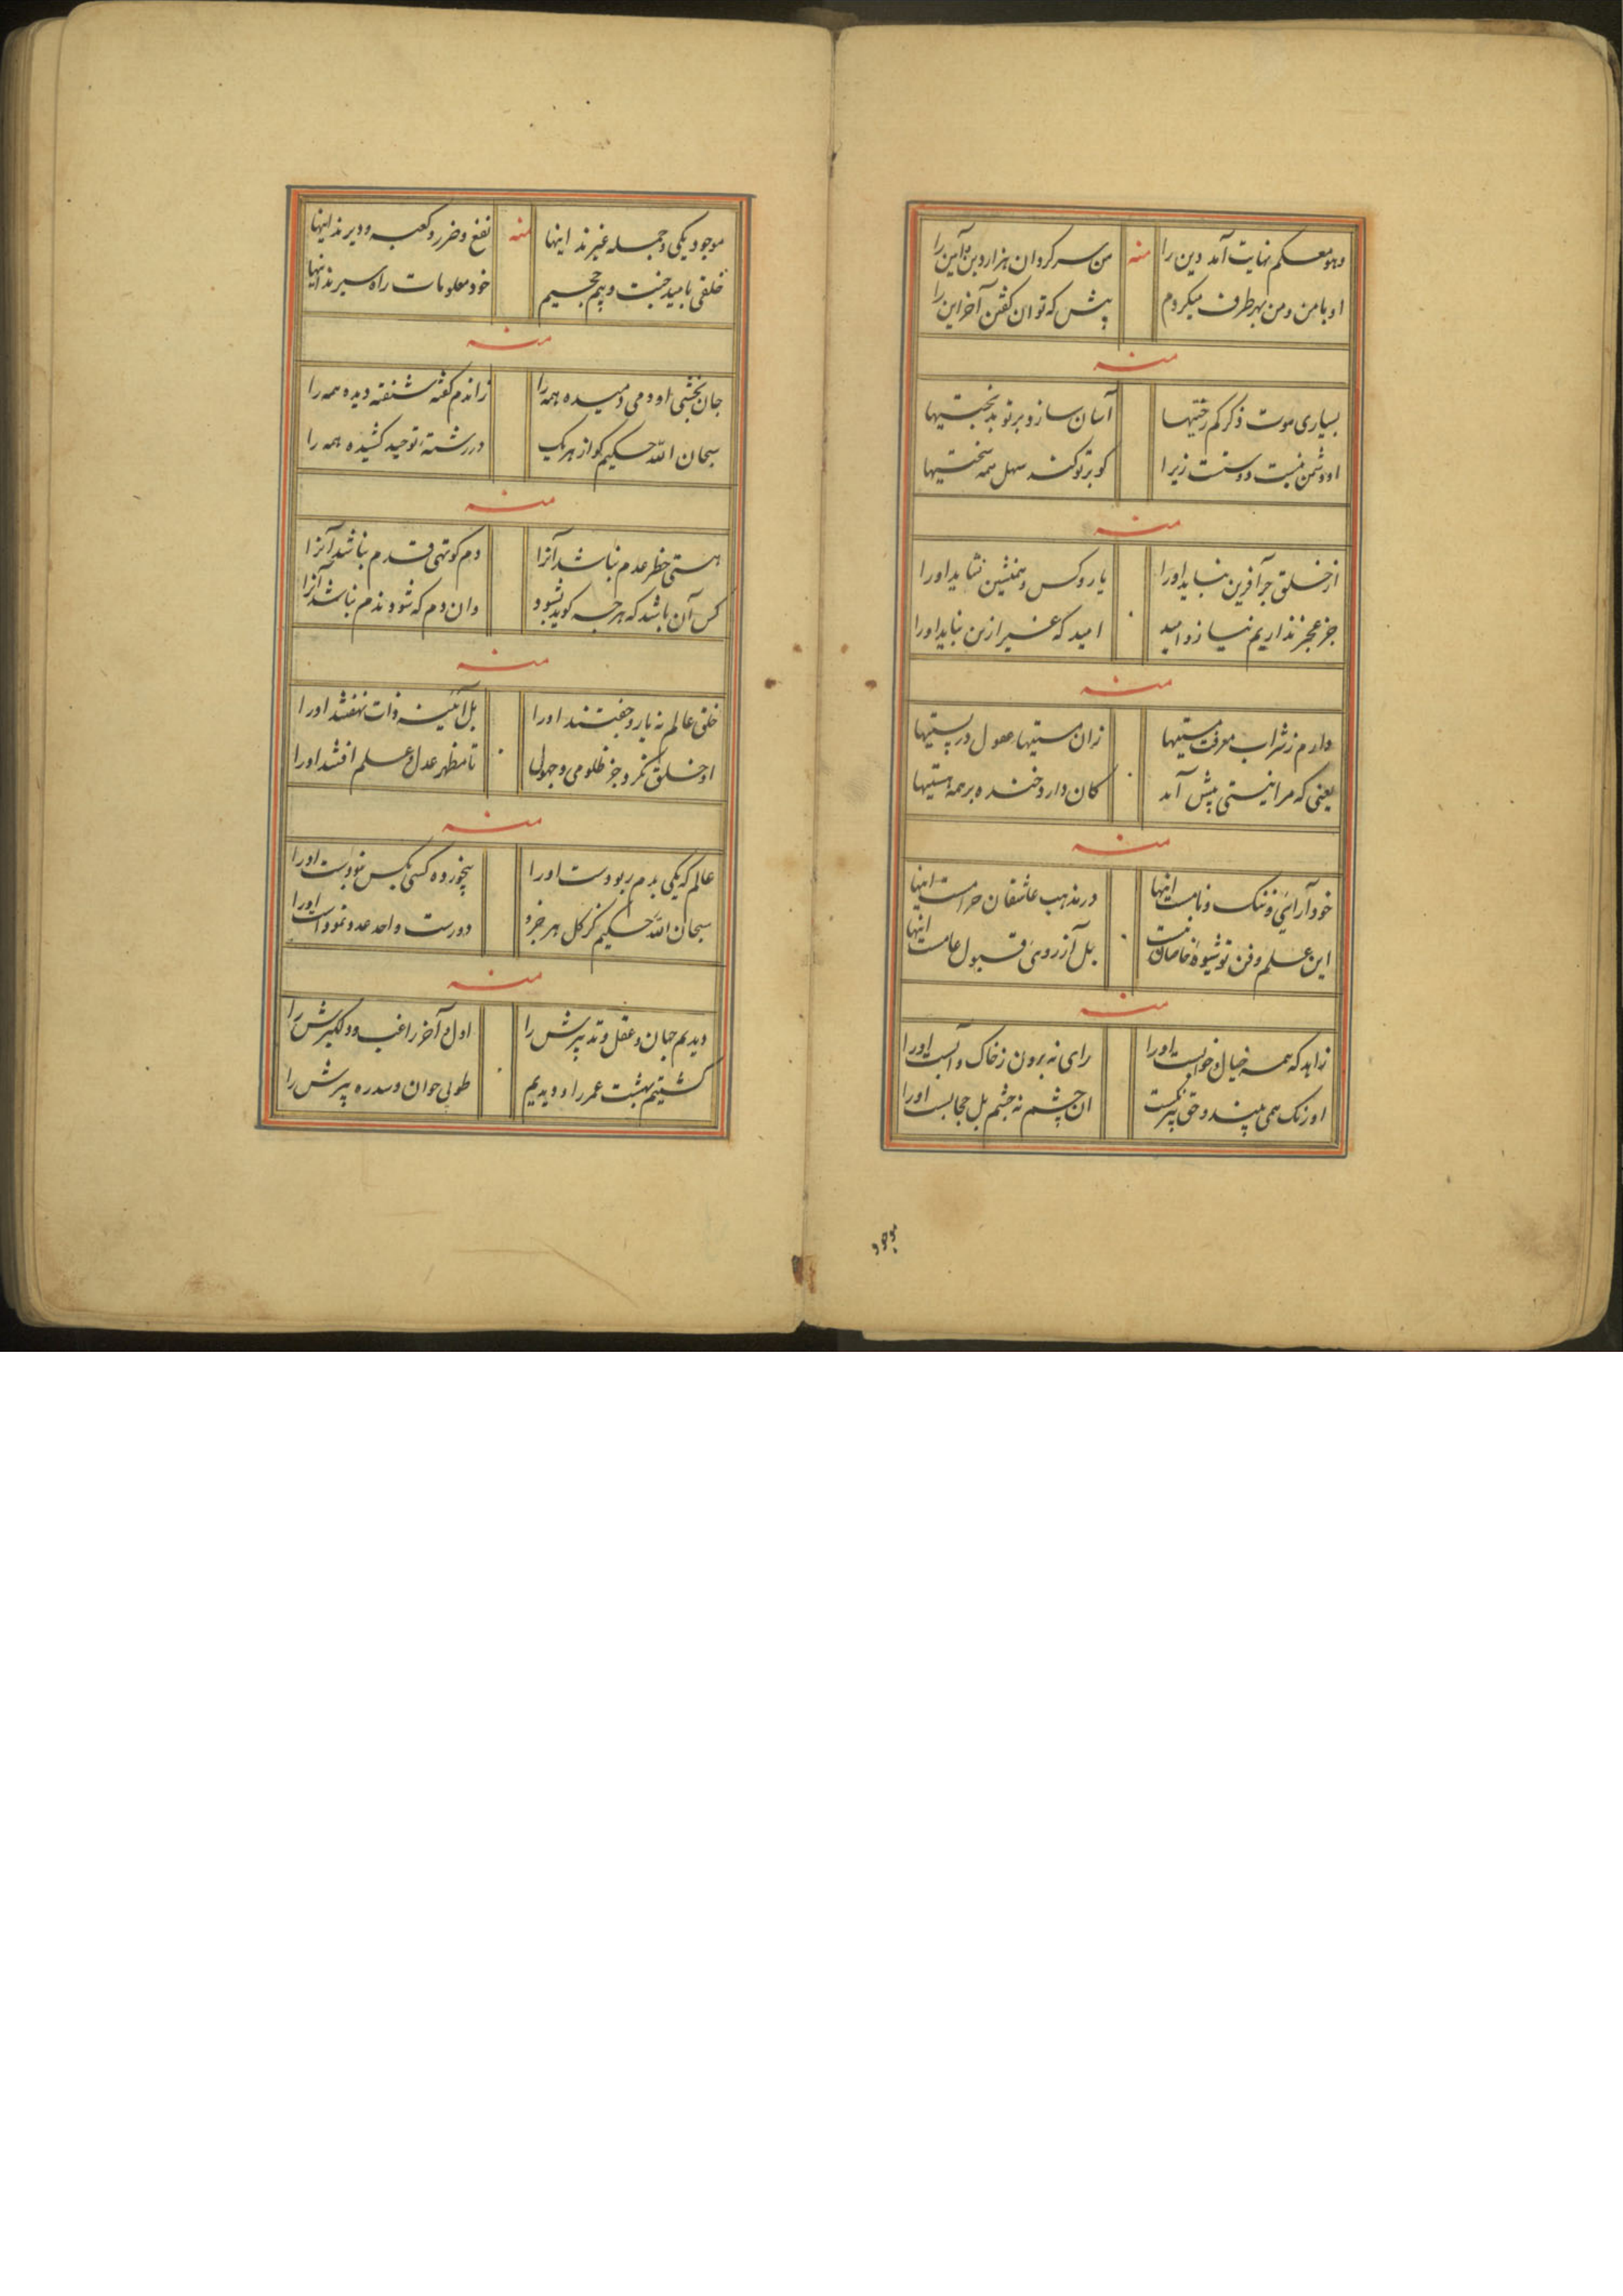 وهو معکم نهایت آمد دین را منه من سر کردان هزار دین و آیین را
او با من و من بهر طرف میکردم پیش که توان کفتن آخر این را
منه
بسیاری موت ذکر کم رختیها آسان سازد بر تو بدبختیها
او دشمن نیست دوستست زیرا کو بر تو کند سهل همه سختیها
منه
از خلق جز آفرین نباید او را یار و کس و همنشین نشاید او را
جز عجز نداریم نیاز و امید امید که غیر ازین نباید او را
منه
دارم ز شراب معرفت مستیها زان مستیها در پستیها
یعنی که مرا نیستی پیش آمد کان دارد خنده بر همه هستیها
منه
خود آرائی و ننک و نامست اینها در مذهب عاشقان حرامست اینها
این علم و فن تو شیوه خاصان نیست بل آرزوی قبول عامست اینها
منه
زاهد که همه خیال و خوابست او را رای نه برون ز خاک و آبست او را
او رنک همی بیند و حق بیرنکست ان چشم نه چشم بل حجابست او را
موجود
موجود یکی و جمله غیرند اینها منه نفع و ضرر و کعبه و دیرند اینها
خلقی بامید جنت و بیم جحیم خود معلومات راه سیرند اینها
منه
جان بخشی او دمی دمیده همه را زاندم کفته شنفته دیده همه را
سبحان الله حکیم کو از هر یک در رشته توحید کشیده همه را
منه
هستی خطر عدم نباشد آنرا دم کوتهی قدم نباشد آنرا
کس آن باشد که هر چه کوید بشنود وان دم که شود ندم نباشد آنرا
منه
خلق عالم نه یار و جفتند او را بل آئینه ذات نهفتند او را
او خلق نکرد جز ظلومی و جهولی تا مظهر عدل و علم افتند او را
منه
عالم که یکی بدم ربودست او را کسی بکس نبودست او را
سبحان الله حکیم کز کل هر جزو دورست واحد عدد نمودست او را
منه
دیدیم جهان و عقل و تدبیرش را اول و آخر راغب و دلکیرش را
کشتیم بهشت عمر را و دیدیم طوبی جوان و سدره پیرش را